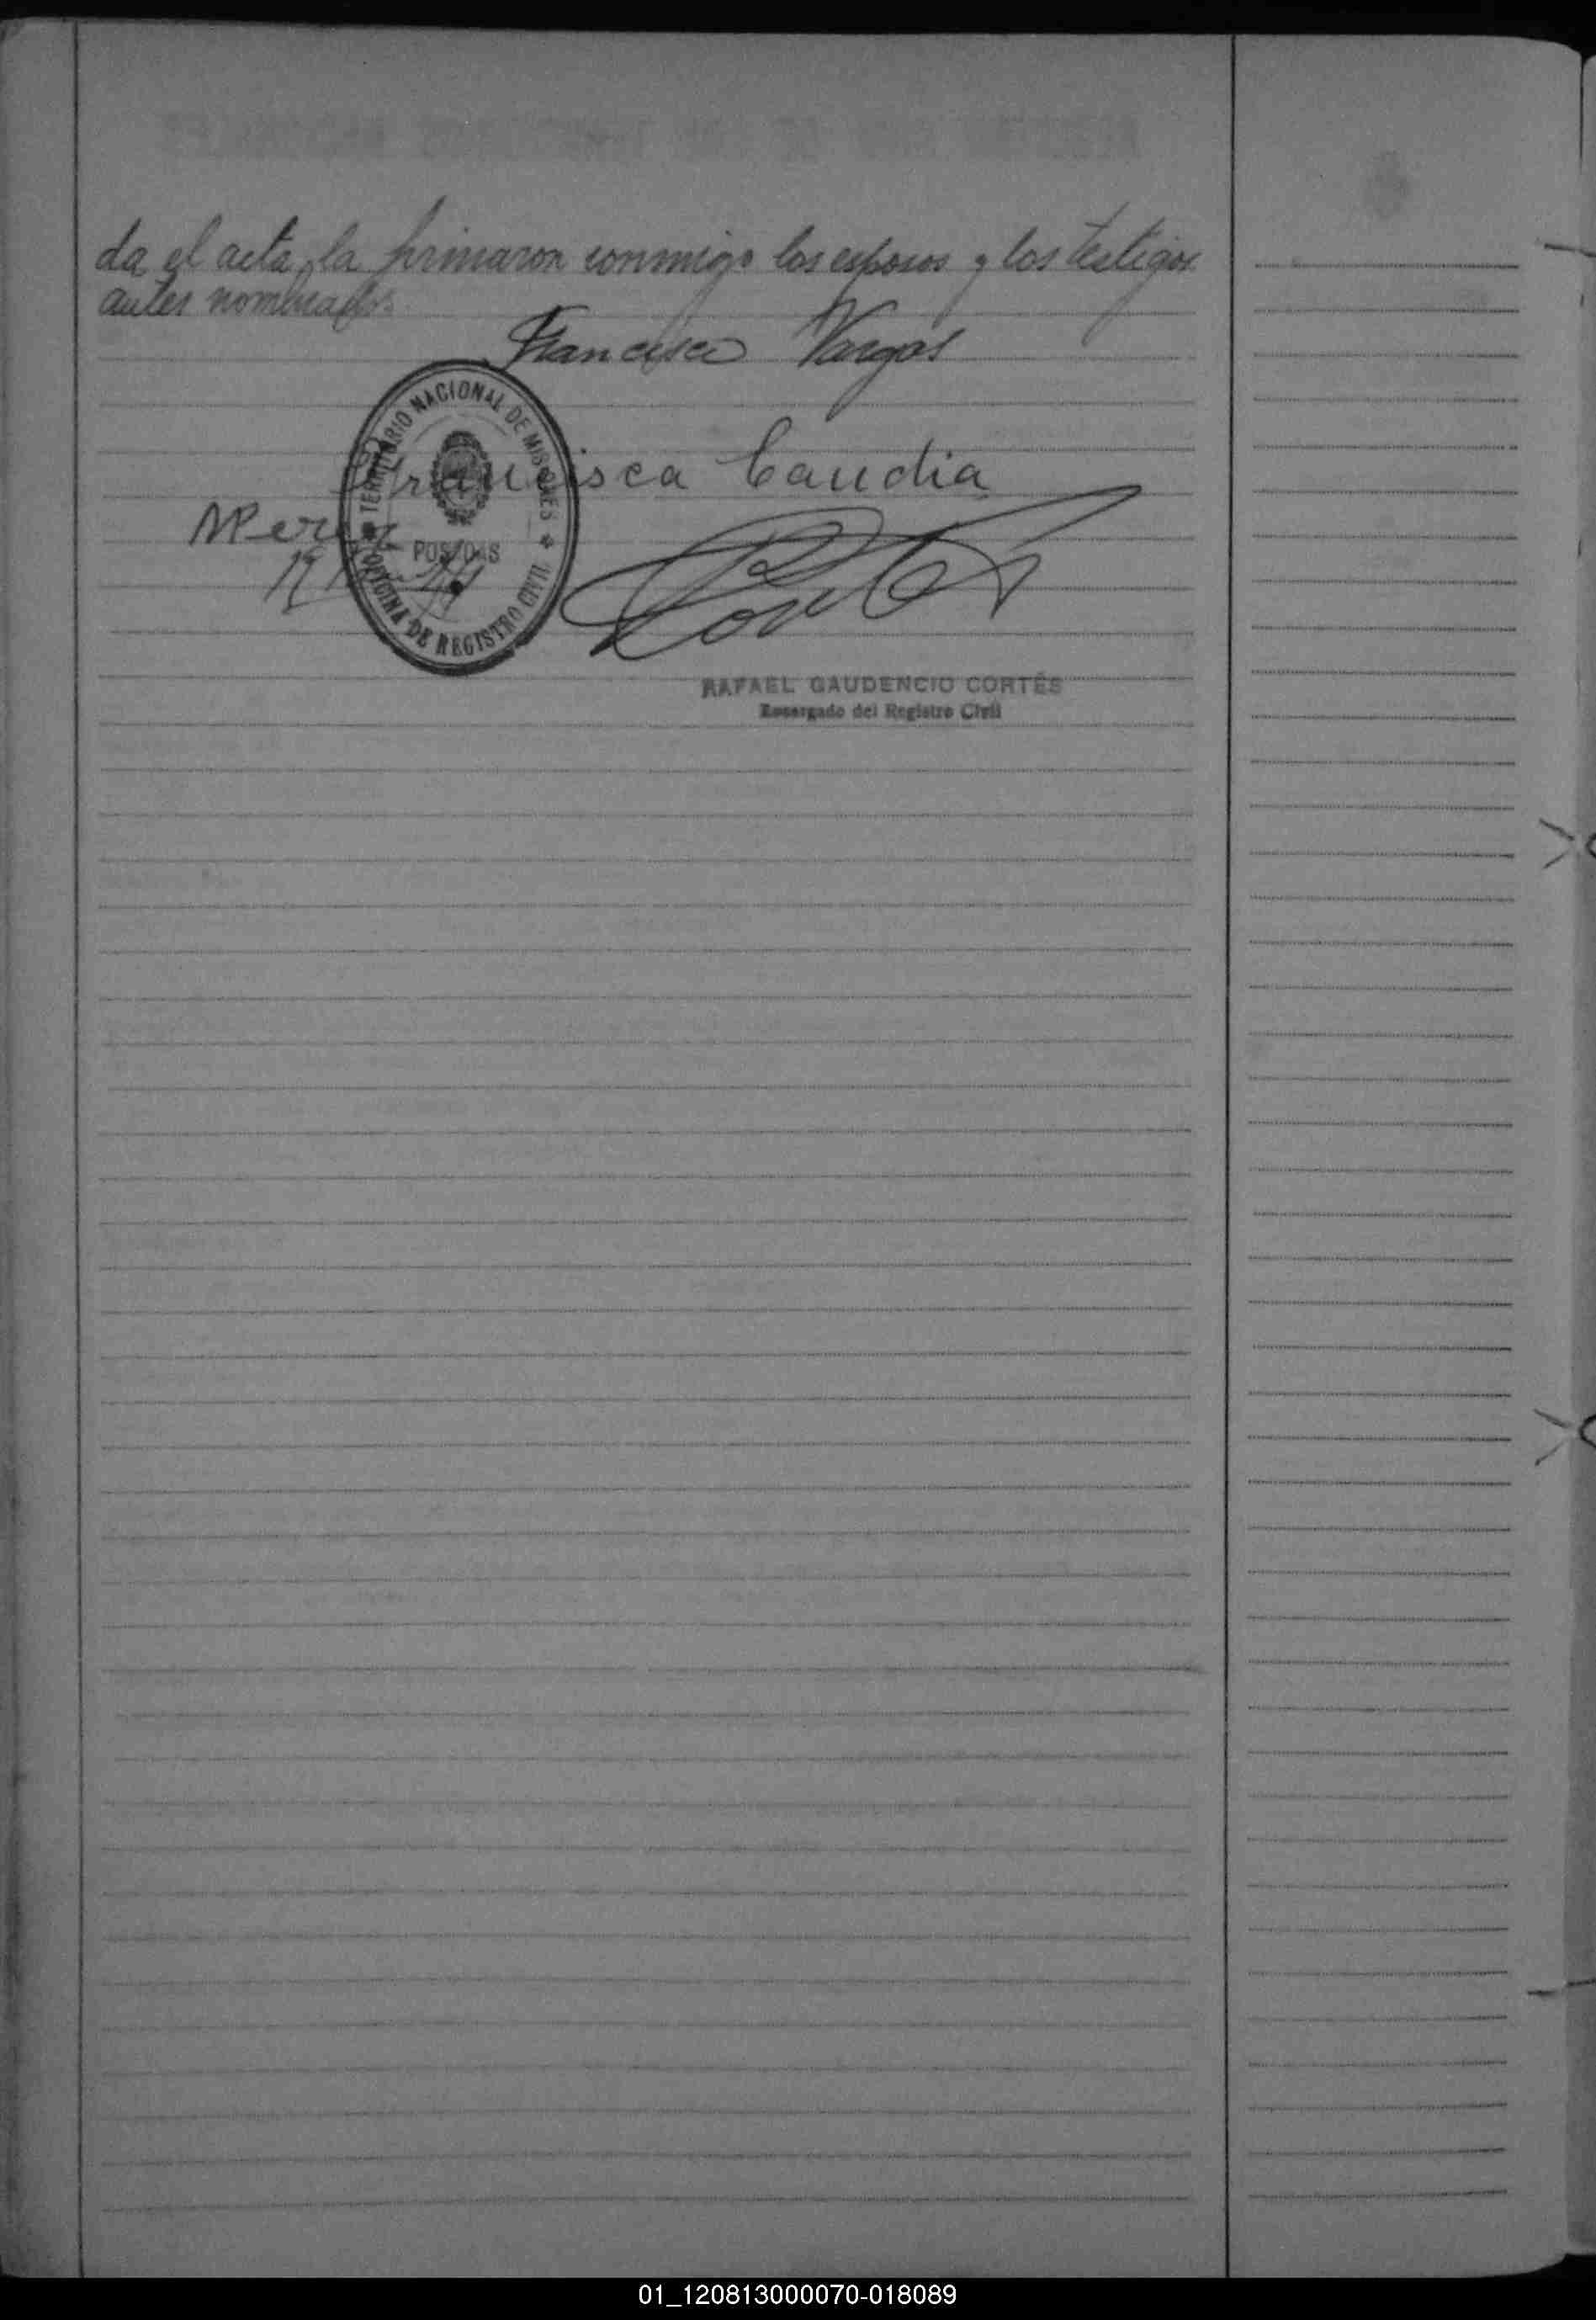 da el acta, la firmaron conmigo los esposos y los testigos
antes nombrados.
Francisco Vargas
Francisca Candia
TERRITORIO NACIONAL DE MISIONES
POSADAS
OFICINA DE REGISTRO CIVIL
RAFAEL GAUDENCIO CORTÉS
Encargado del Registro Civil
01_120813000070-018089